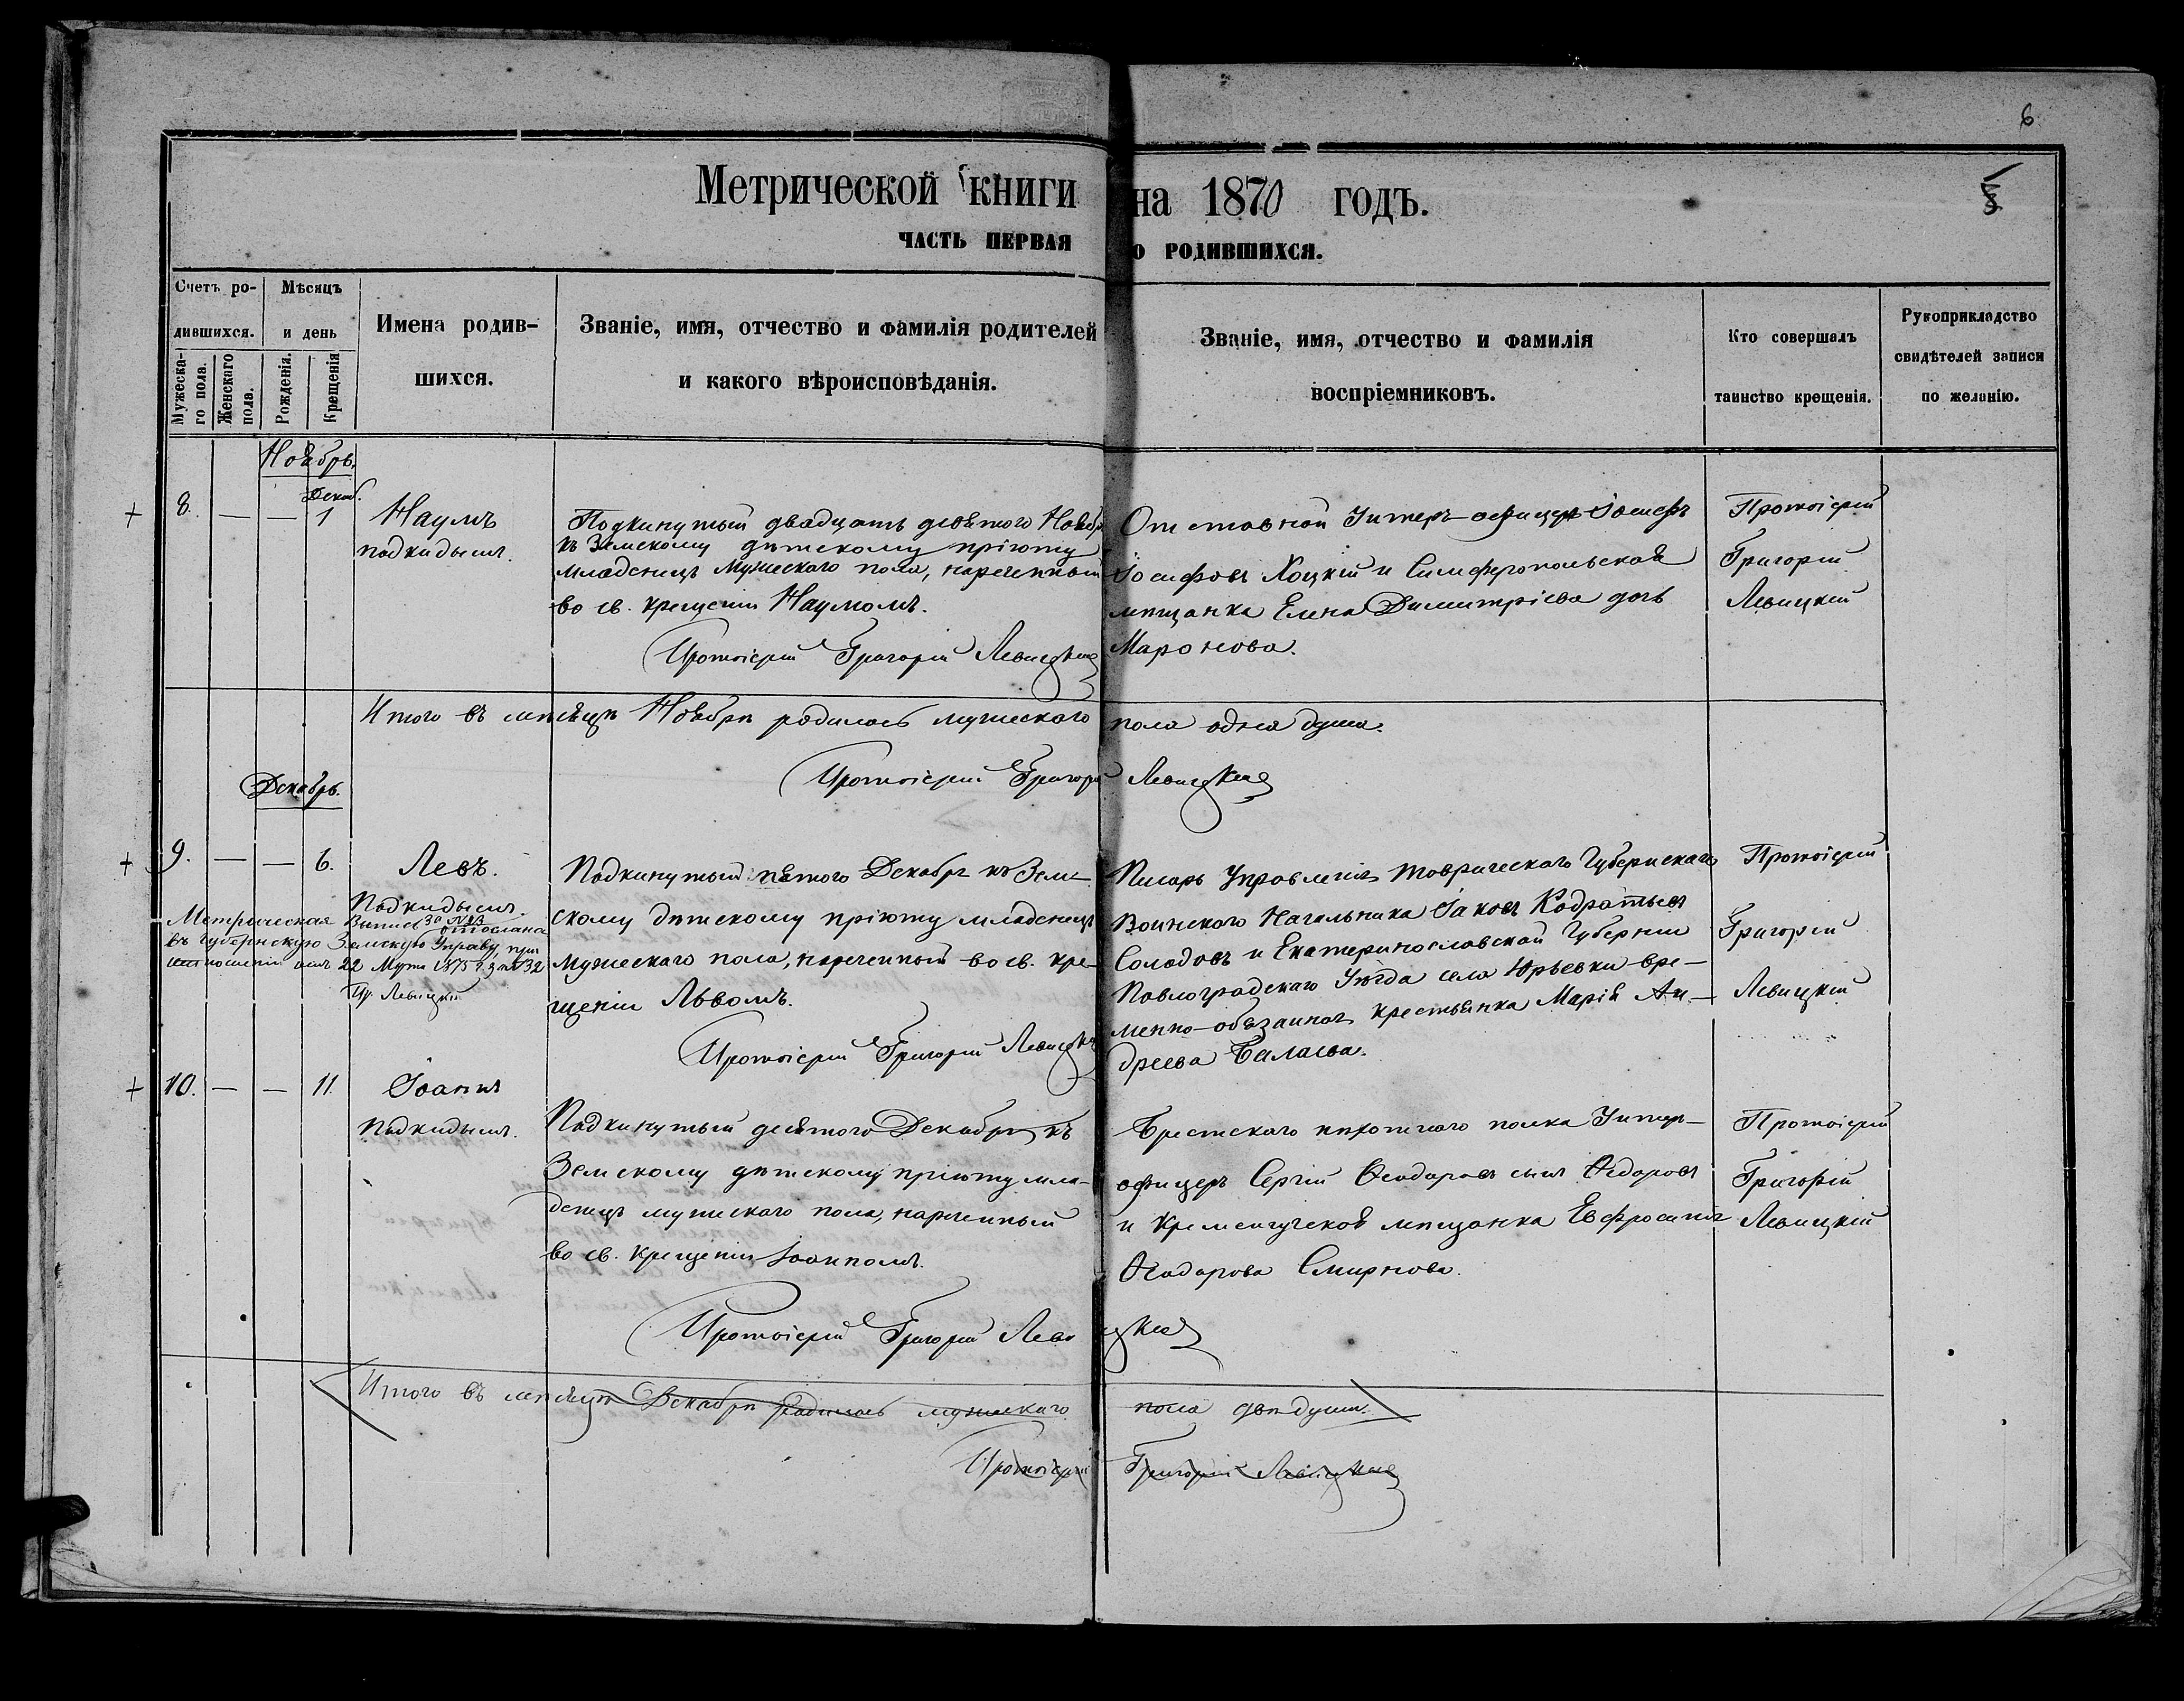 6
Метрической книги на 1870 годъ.
5
ЧАСТЬ ПЕРВАЯ О РОДИВШИХСЯ.
Счетъ ро-
дившихся.
Мужеска-
го пола.
Женскаго
пола.
Мѣсяцъ
и день
Рожденія.
Крещенія
Имена родив-
шихся.
Званіе, имя, отчество и фамилія родителей
и какого вѣроисповѣданія.
Званіе, имя, отчество и фамилія
воспріемниковъ.
Кто совершалъ
таинство крещенія.
Рукоприкладство
свидѣтелей записи
по желанію.
Ноябрь.
Декаб.
+ 8. — — 1
Наумъ
подкидышъ.
Подкинутый двадцать девятого Ноябр
къ Земскому дѣтскому пріюту
младенецъ мужескаго пола, нареченный
во св. крещеніи Наумомъ.
Протоіерей Григорій Левицкій
Отставной Унтеръ-офицеръ Іосифъ
Іосифовъ Хоцкій и Симферопольская
мѣщанка Елена Димитріева дочь
Маронова.
Протоіерей
Григорій
Левицкій
Итого въ мѣсяцѣ Ноябрѣ родилось мужескаго пола одна душа.
Протоіерей Григорій Левицкій
Декабрь.
+ 9. — — 6.
Левъ.
Подкидышъ.
Метрическая Выпись за №13 отослана
въ Губернскую Земскую Управу, при
отношеніи отъ 22 1875 г. за №32
Пр. Левицкій
Подкинутый пятого Декабря къ Зем-
скому дѣтскому пріюту младенецъ
мужескаго пола, нареченный во св. кре-
щеніи Львомъ.
Протоіерей Григорій Левицкій
Писарь Управленія Таврическаго Губернскаго
Воинскаго Начальника Іаковъ Кодратьевъ
Солодовъ и Екатеринославской Губерніи
Павлоградскаго Уѣзда села Юрьевки вре-
менно-обязанная крестьянка Марія Ан-
дреева Балаева.
Протоіерей
Григорій
Левицкій
+ 10. — — 11.
Іоаннъ
подкидышъ.
Подкинутый десятого Декабря къ
Земскому дѣтскому пріюту мла-
денецъ мужескаго пола, нареченный
во св. крещеніи Іоанномъ.
Протоіерей Григорій Левицкій
Брестскаго пѣхотнаго полка Унтеръ-
офицеръ Сергій Ѳеодоровъ сынъ Ѳедоровъ
и Кременчугская мѣщанка Евфросинія
Ѳеодорова Смирнова.
Протоіерей
Григорій
Левицкій
Итого въ мѣсяцѣ Декабрѣ родилось мужескаго пола двѣ души.
Протоіерей Григорій Левицкій